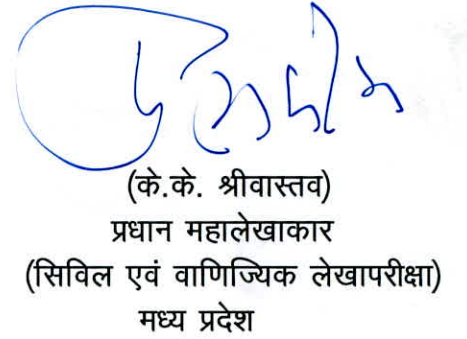 (के.के. श्रीवास्तव)
प्रधान महालेखाकार
(सिविल एवं वाणिज्यिक लेखापरीक्षा)
मध्य प्रदेश